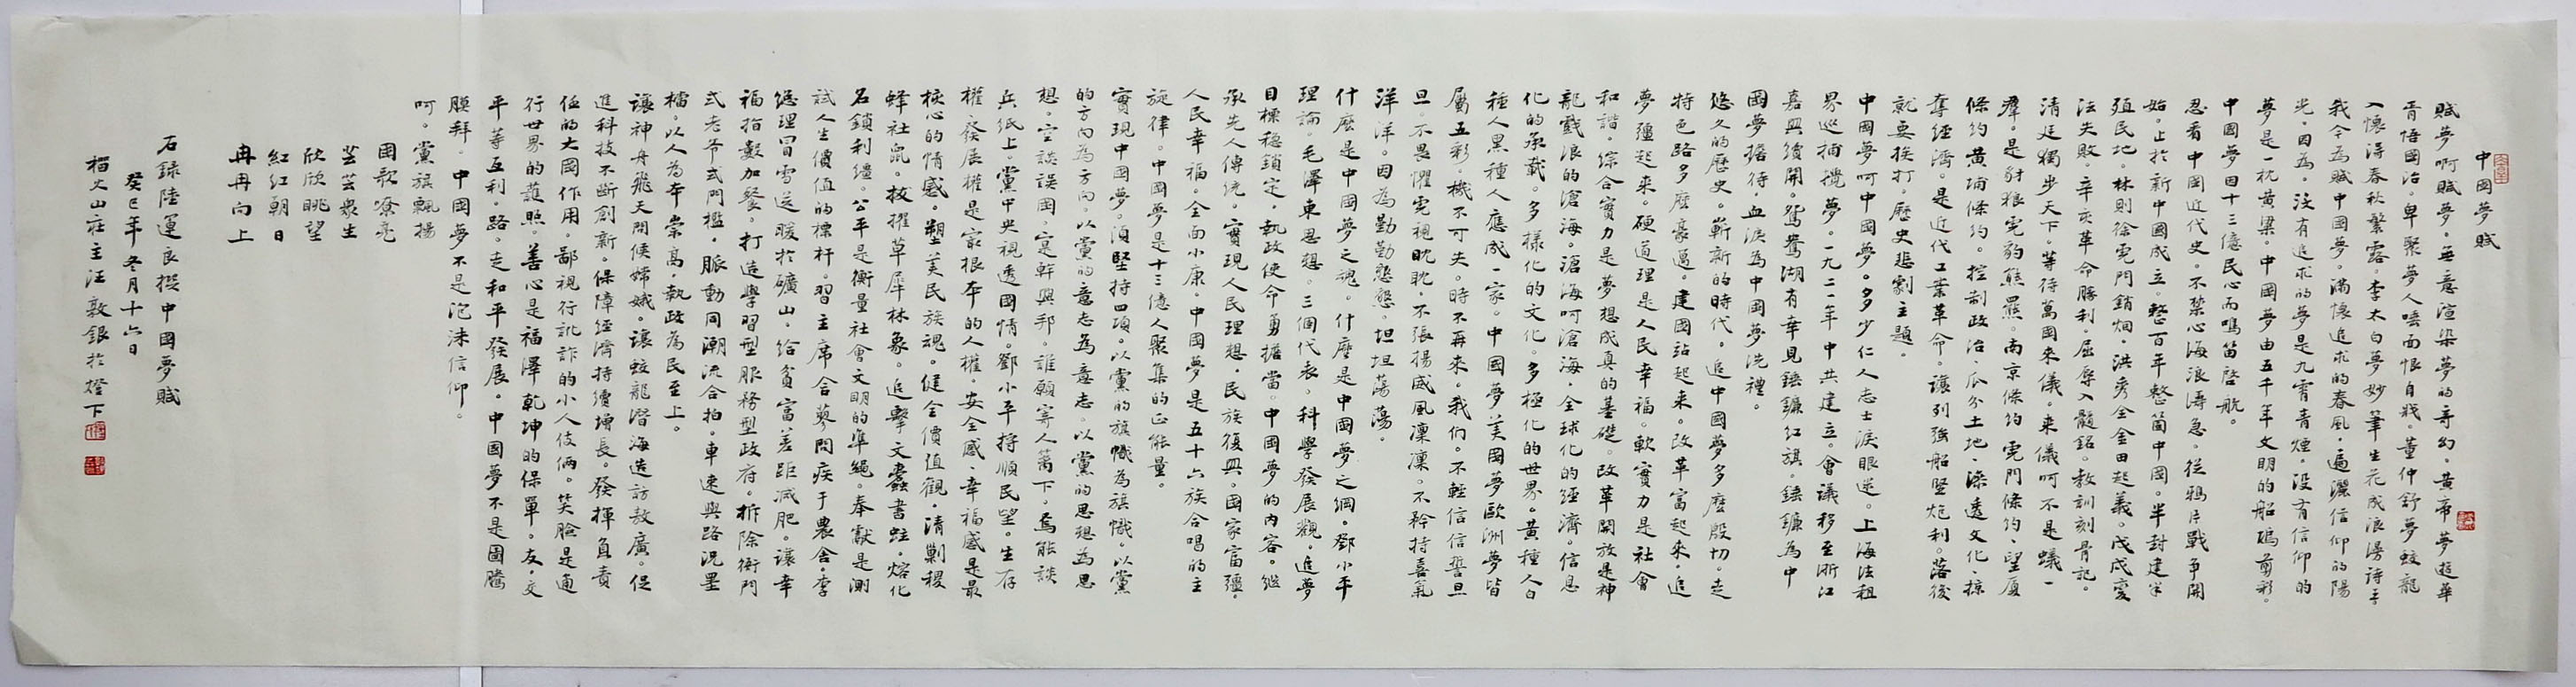 中國夢賦
賦夢啊賦夢。無意渲染夢的奇幻。黃帝夢遊華
胥悟國治。卑聚夢人唾而恨自戕。董仲舒夢蛟龍
入懷得春秋繁露。李太白夢妙筆生花成浪漫詩手
我今為賦中國夢。滿懷追求的春風。遍灑信仰的陽
光。因為。沒有追求的夢是九霄青煙。沒有信仰的
夢是一枕黃粱。中國夢由五千年文明的船碼剪彩。
中國夢因十三億民心而鳴笛啓航。
忍看中國近代史。不禁心海浪濤急。從鴉片戰爭開
始。止於新中國成立。整百年整箇中國。半封建半
殖民地。林則徐虎門銷烟。洪秀全金田起義。戊戌變
法失敗。辛亥革命勝利屈辱入髓銘。教訓刻骨記。
清廷獨步天下。等待萬國來儀。來儀呵不是蟻一
羣。是豺狼虎豹熊羆。南京條約虎門條約、望廈
條約黃埔條約。控制政治、瓜分土地、滲透文化、掠
奪經濟。是近代工業革命。讓列強船堅炮利。落後
就要挨打。歷史悲劇主題。
中國夢呵中國夢。多少仁人志士淚眼迷。上海法租
界巡捕攪夢。一九二一年中共建立。會議移至浙江
嘉興續開。鴛鴦湖有幸見錘鐮紅旗。錘鐮為中
國夢擔待。血淚為中國夢洗禮。
悠久的歷史。嶄新的時代。追中國夢多麼殷切。走
特色路多麼豪邁。建國站起來。改革富起來。追
夢彊起來。硬道理是人民幸福。軟實力是社會
和諧。綜合實力是夢想成真的基礎。改革開放是神
龍戲浪的滄海。滄海呵滄海。全球化的經濟。信息
化的承載。多樣化的文化。多極化的世界。黃種人白
種人黑種人應成一家。中國夢美國夢歐洲夢皆
屬五彩。機不可失。時不再來。我們。不輕信信誓旦
旦。不畏懼虎視眈眈。不張揚威風凜凜。不矜持喜氣
洋洋。因為勤勤懇懇。坦坦蕩蕩。
什麼是中國夢之魂。什麼是中國夢之綱。鄧小平
理論。毛澤東思想。三個代表。科學發展觀。追夢
目標穩鎖定。執政使命勇擔當。中國夢的內容。繼
承先人傳統。實現人民理想。民族復興。國家富彊。
人民幸福。全面小康。中國夢是五十六族合唱的主
旋律。中國夢是十三億人聚集的正能量。
實現中國夢。須堅持四項。以黨的旗幟為旗幟。以黨
的方向為方向。以黨的意志為意志。以黨的思想為思
想。空談誤國。實幹興邦。誰願寄人籬下。焉能談
兵紙上。黨中央視透國情。鄧小平捋順民望。生存
權、發展權是最根本的人權。安全感、幸福感是最
核心的情感。塑美民族魂。健全價值觀。清剿稷
蜂社鼠。拔擢草犀林象。追擊文蠹書蛀。熔化
名鎖利繮。公平是衡量社會文明的準繩。奉獻是測
試人生價值的標杆。習主席合蓼問疾于農舍。李
總理冒雪送暖於礦山。給貧富差距減肥。讓幸
福指數加餐。打造學習型服務型政府。拆除衙門
式老爺式門檻。脈動同潮流合拍。車速與路況置
檔。以人為本崇高。執政為民至上。
讓神舟飛天問候嫦娥。讓蛟龍潛海造訪敖廣。促
進科技不斷創新。保障經濟持續增長。發揮負責
任的大國作用。鄙視行訛詐的小人伎倆。笑臉是通
行世界的護照。善心是福澤乾坤的保單。友交
平等互利。路。走和平發展。中國夢不是圖騰
膜拜。中國夢不是泡沫信仰。
呵。黨旗飄揚
國歌嘹亮
芸芸眾生
欣欣眺望
紅紅朝日
冉冉向上
石錄陸運良撰中國夢賦
癸巳年冬月十六日
榴火山莊主汪敦銀於燈下